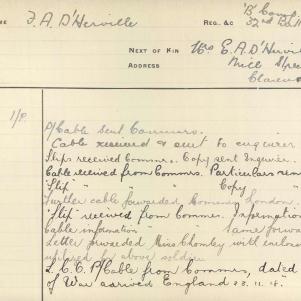 ME F. A. D'Herville REG. &c 'B' Comp
32nd Batt
NEXT OF KIN Mrs E. A. D'Hervi
ADDRESS Mill Stree
Claren
P/Cable sent Commrs.
Cable received & sent to enquirer
Slips received Commrs. Copy sent Enquirer.
Cable received from Commrs. Particulars
"Slip" " " Copy "
Further cable forwarded Commrs London
"Slip" received from Commrs. Information
Cable information " same forwar
Letter forwarded Miss Chomley with enclos
by above soldier
P/Cable from Commrs, dated
of War arrived England 23.11.18.